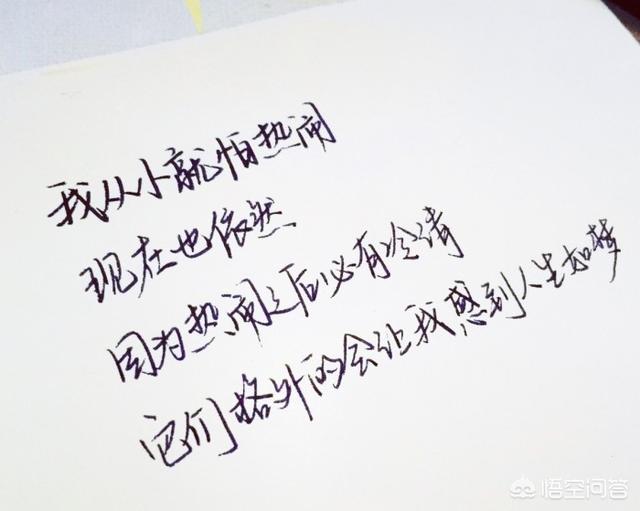 我从小就怕热闹
现在也依然
因为热闹之后必有冷清
它们格外的会让我感到人生如梦
悟空问答